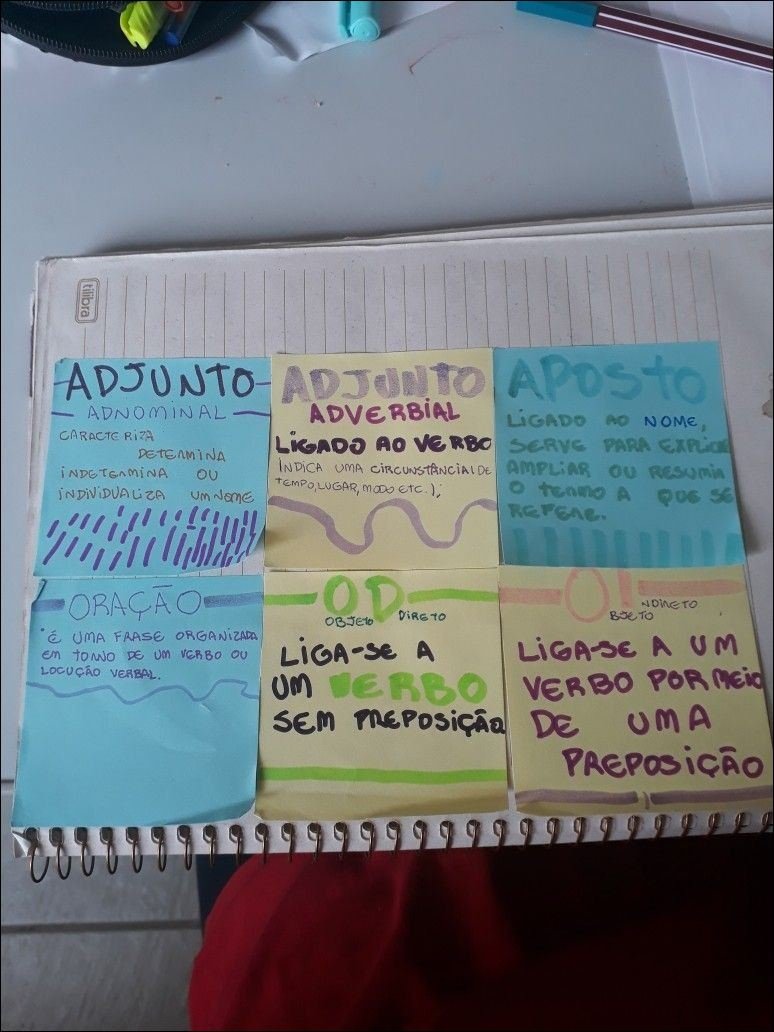 tilibra
ADJUNTO
ADNOMINAL
CARACTERIZA
DETERMINA
INDETERMINA OU
INDIVIDUALIZA UM NOME
ADJUNTO
ADVERBIAL
LIGADO AO VERBO
INDICA UMA CIRCUNSTÂNCIA( DE
TEMPO, LUGAR, MODO ETC.);
APOSTO
LIGADO AO NOME,
SERVE PARA EXPLICAR
AMPLIAR OU RESUMIR
O TERMO A QUE SE
REFERE.
ORAÇÃO
É UMA FRASE ORGANIZADA
EM TORNO DE UM VERBO OU
LOCUÇÃO VERBAL.
OD
OBJETO DIRETO
LIGA-SE A
UM VERBO
SEM PREPOSIÇÃO
OI
NDIRETO
BJETO
LIGA-SE A UM
VERBO POR MEIO
DE UMA
PREPOSIÇÃO